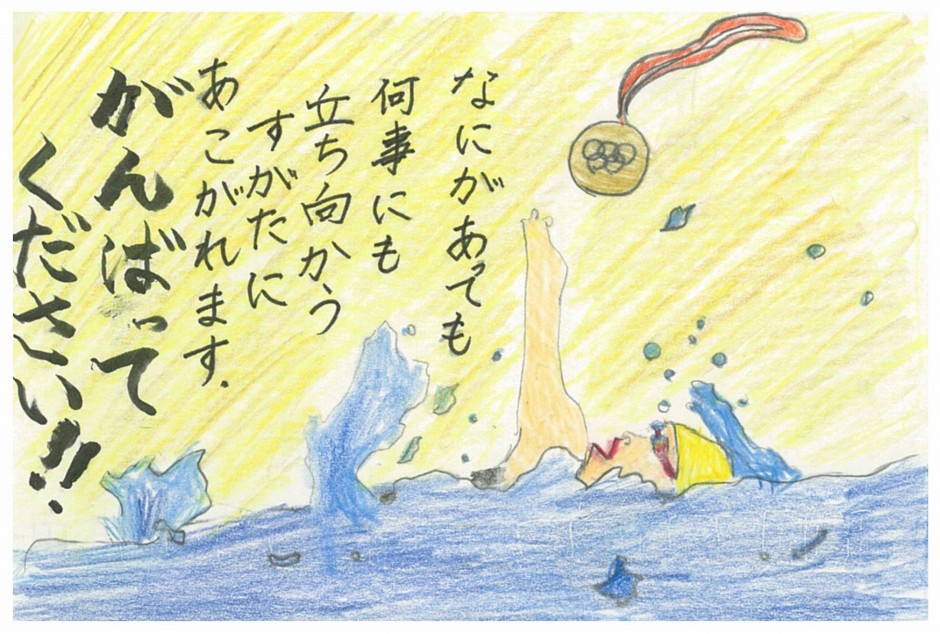 なにがあっても
何事にも
立ち向かう
すがたに
あこがれます.
がんばって
ください!!